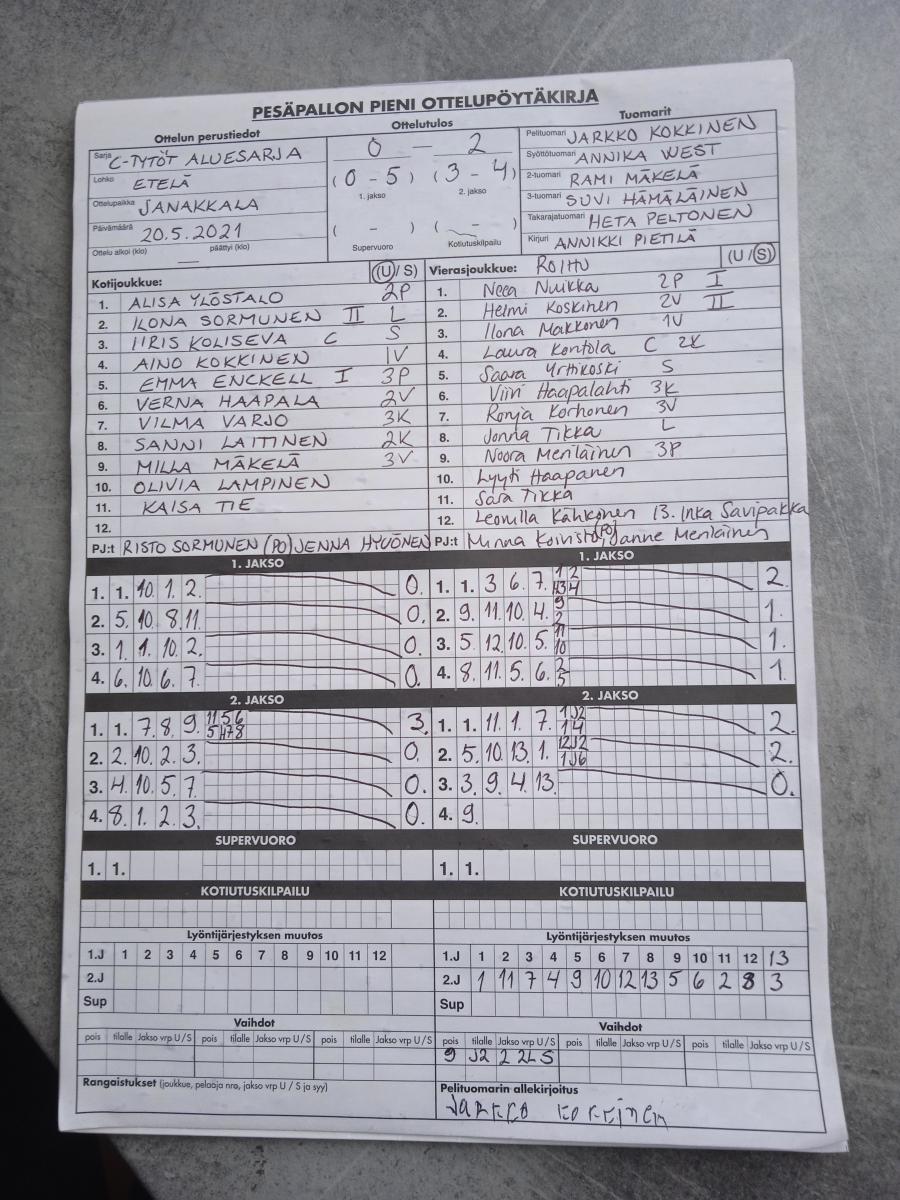 PESÄPALLON PIENI OTTELUPÖYTÄKIRJA
Ottelun perustiedot
Sarja C-TYTÖT ALUESARJA
Lohko ETELÄ
Ottelupaikka JANAKKALA
Päivämäärä 20.5.2021
Ottelu alkoi (klo) — päättyi (klo)
Ottelutulos
0 — 2
(0 - 5) (3 - 4)
1. jakso 2. jakso
( - ) ( - )
Supervuoro Kotiutuskilpailu
Tuomarit
Pelituomari JARKKO KOKKINEN
Syöttötuomari ANNIKA WEST
2-tuomari RAMI MÄKELÄ
3-tuomari SUVI HÄMÄLÄINEN
Takarajatuomari HETA PELTONEN
Kirjuri ANNIKKI PIETILÄ
Kotijoukkue: (U/S)
1. ALISA YLÖSTALO 2P
2. ILONA SORMUNEN II L
3. IIRIS KOLISEVA C S
4. AINO KOKKINEN 1V
5. EMMA ENCKELL I 3P
6. VERNA HAAPALA 2V
7. VILMA VARJO 3K
8. SANNI LAITINEN 2K
9. MILLA MÄKELÄ 3V
10. OLIVIA LAMPINEN
11. KAISA TIE
12.
PJ:t RISTO SORMUNEN (PO) JENNA HYVÖNEN
Vierasjoukkue: ROIHU (U/S)
1. Neea Nuikka 2P I
2. Helmi Koskinen 2V II
3. Ilona Makkonen 1V
4. Laura Kontola C 2K
5. Saara Yrttikoski S
6. Viivi Haapalahti 3K
7. Ronja Korhonen 3V
8. Jonna Tikka L
9. Noora Meriläinen 3P
10. Lyyti Haapanen
11. Sara Tikka
12. Leonilla Kähkönen 13. Inka Savipakka
PJ:t Minna Koivisto (PO) Janne Meriläinen
1. JAKSO
1. 1. 10. 1. 2. 0.
2. 5. 10. 8. 11. 0.
3. 1. 1. 10. 2. 0.
4. 6. 10. 6. 7. 0.
1. JAKSO
1. 1. 3 6. 7. 2.
2. 9. 11. 10. 4. 9 2 1.
3. 5. 12. 10. 5. 11 10 1.
4. 8. 11. 5. 6. 2 5 1.
2. JAKSO
1. 1. 7. 8. 9. 11 5 6 3.
2. 2. 10. 2. 3. 0.
3. 4. 10. 5. 7. 0.
4. 8. 1. 2. 3. 0.
2. JAKSO
1. 1. 11. 1. 7. 2.
2. 5. 10. 13. 1. 2.
3. 3. 9. 4. 13. 0.
4. 9.
SUPERVUORO
1. 1.
SUPERVUORO
1. 1.
KOTIUTUSKILPAILU
KOTIUTUSKILPAILU
Lyöntijärjestyksen muutos
1.J 1 2 3 4 5 6 7 8 9 10 11 12
2.J
Sup
Lyöntijärjestyksen muutos
1.J 1 2 3 4 5 6 7 8 9 10 11 12 13
2.J 1 11 7 4 9 10 12 13 5 6 2 8 3
Sup
Vaihdot
pois tilalle Jakso vrp U/S pois tilalle Jakso vrp U/S pois tilalle Jakso vrp U/S
Vaihdot
pois tilalle Jakso vrp U/S pois tilalle Jakso vrp U/S pois tilalle Jakso vrp U/S
9 J2 2 2L S
Rangaistukset (joukkue, pelaaja nro, jakso vrp U / S ja syy)
Pelituomarin allekirjoitus
JARKKO KOKKINEN